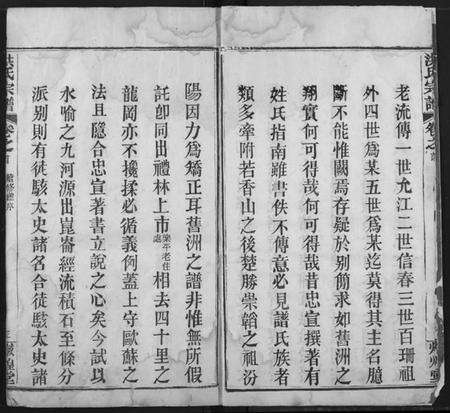 洪氏宗譜
卷之首
老流傳一世允江二世信春三世百珊祖
外四世爲某五世爲某迄莫得其主名臆
斷不能惟闕焉存疑於別簡求如舊洲之
翔實何可得哉何可得哉昔忠宣撰著有
姓氏指南雖書佚不傳意必見譜氏族者
類多牽附若香山之後楚勝崇韜之祖汾
陽因力爲矯正耳舊洲之譜非惟無所假
託卽同出禮林上市樂平老住處相去四十里之
龍岡亦不攙揉必循義例蓋上守歐蘇之
法且隱合忠宣著書立說之心矣今試以
水喻之九河源出崑崙經流積石至條分
派別則有徒駭太史諸名合徒駭太史諸
洪氏宗譜
卷之首
續修譜序
敦煌堂